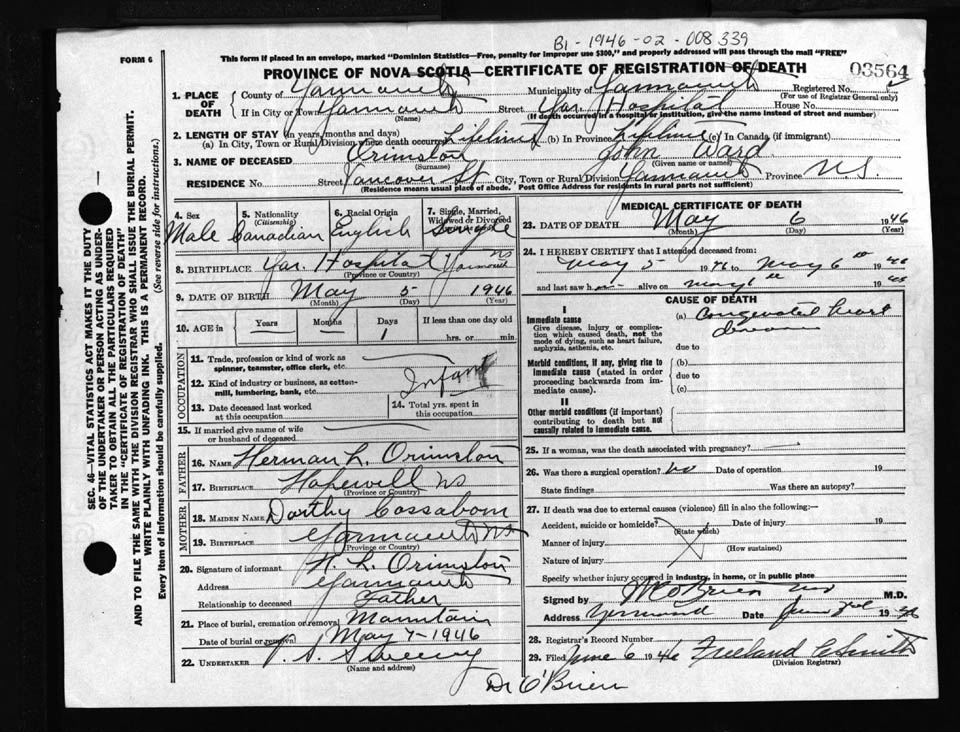 B1-1946-02-008339
This form if placed in an envelope, marked "Dominion Statistics—Free, penalty for improper use $300," and properly addressed will pass through the mail "FREE"
FORM 6
PROVINCE OF NOVA SCOTIA—CERTIFICATE OF REGISTRATION OF DEATH
03564
1. PLACE OF DEATH
County of Yarmouth Municipality of Yarmouth Registered No.
(For use of Registrar General only)
If in City or Town Yarmouth Street Yar. Hospital House No.
(Name) (If death occurred in a hospital or institution, give the name instead of street and number)
2. LENGTH OF STAY (in years, months and days)
(a) In City, Town or Rural Division where death occurred Lifetime (b) In Province Lifetime (c) In Canada (if immigrant)
3. NAME OF DECEASED Orimston John Ward
(Surname) (Given name or names)
RESIDENCE No. Street Vancover St City, Town or Rural Division Yarmouth Province N.S.
(Residence means usual place of abode. Post Office Address for residents in rural parts not sufficient)
4. Sex Male
5. Nationality (Citizenship) Canadian
6. Racial Origin English
7. Single, Married, Widowed or Divorced Single
8. BIRTHPLACE Yar. Hospital Yarmouth NS
(Province or Country)
9. DATE OF BIRTH May 5 1946
(Month) (Day) (Year)
10. AGE in Years Months Days 1 If less than one day old hrs. or min.
OCCUPATION
11. Trade, profession or kind of work as spinner, teamster, office clerk, etc.
12. Kind of industry or business, as cotton-mill, lumbering, bank, etc. Infant
13. Date deceased last worked at this occupation
14. Total yrs. spent in this occupation
15. If married give name of wife or husband of deceased
FATHER
16. NAME Herman L. Orimston
17. BIRTHPLACE Hopewell NS
(Province or Country)
MOTHER
18. MAIDEN NAME Dorthy Cossaboom
19. BIRTHPLACE Yarmouth NS
(Province or Country)
20. Signature of informant H. L. Orimston
Address Yarmouth
Relationship to deceased Father
21. Place of burial, cremation or removal Mountain
Date of burial or removal May 7-1946
22. UNDERTAKER V. S. Sweeny
(Name and address)
Dr O'Brien
MEDICAL CERTIFICATE OF DEATH
23. DATE OF DEATH May 6 1946
(Month) (Day) (Year)
24. I HEREBY CERTIFY that I attended deceased from:
May 5 1946 to May 6th 1946
and last saw h alive on May 6th 1946
CAUSE OF DEATH
I
Immediate cause
Give disease, injury or complication which caused death, not the mode of dying, such as heart failure, asphyxia, asthenia, etc.
(a) Congenital heart disease
due to
Morbid conditions, if any, giving rise to immediate cause (stated in order proceeding backwards from immediate cause).
(b)
due to
(c)
II
Other morbid conditions (if important) contributing to death but not causally related to immediate cause.
25. If a woman, was the death associated with pregnancy?
26. Was there a surgical operation? no Date of operation 19
State findings Was there an autopsy?
27. If death was due to external causes (violence) fill in also the following:—
Accident, suicide or homicide? Date of injury 19
(State which)
Manner of injury
(How sustained)
Nature of injury
Specify whether injury occurred in industry, in home, or in public place
Signed by O'Brien M.D.
Address Date June 3rd 1946
28. Registrar's Record Number
29. Filed June 6 1946 Freeland C Smith
(Division Registrar)
SEC. 46—VITAL STATISTICS ACT MAKES IT THE DUTY
OF THE UNDERTAKER OR PERSON ACTING AS UNDERTAKER TO OBTAIN ALL THE PARTICULARS REQUIRED
IN THE "CERTIFICATE OF REGISTRATION OF DEATH"
AND TO FILE THE SAME WITH THE DIVISION REGISTRAR WHO SHALL ISSUE THE BURIAL PERMIT.
WRITE PLAINLY WITH UNFADING INK. THIS IS A PERMANENT RECORD.
Every item of information should be carefully supplied. (See reverse side for instructions.)